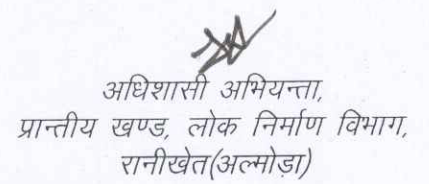 अधिशासी अभियन्ता,
प्रान्तीय खण्ड, लोक निर्माण विभाग,
रानीखेत(अल्मोड़ा)